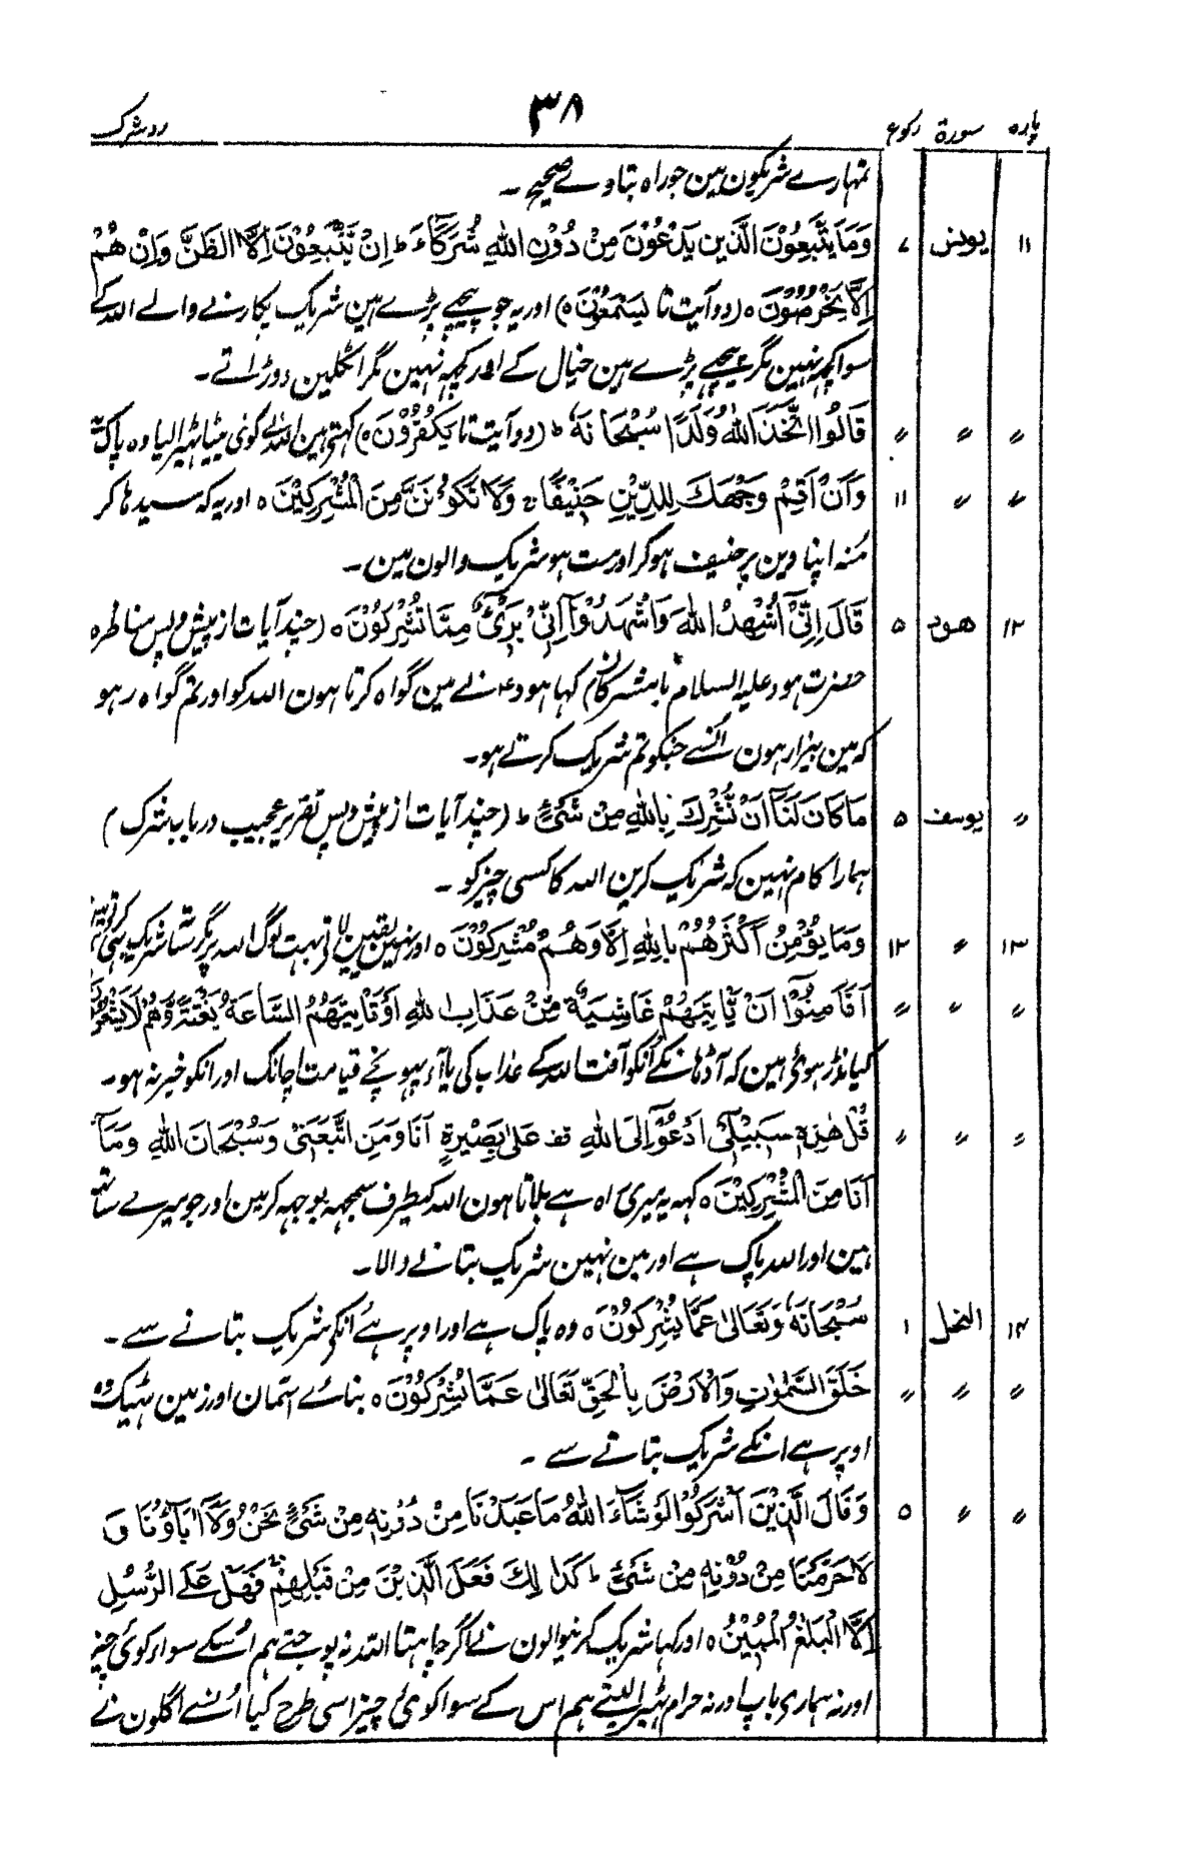 پارہ سورة رکوع ۳۸ رد شرک
تمہارے شریکون مین جو راہ بتاوے صحیح ۔
۱۱ یونس ۷ وَمَا يَتَّبِعُوْنَ الَّذِيْنَ يَدْعُوْنَ مِنْ دُوْنِ اللهِ شُرَكَآءَ ط اِنْ يَتَّبِعُوْنَ اِلَّا الظَّنَّ وَاِنْ هُمْ
اِلَّا يَخْرُصُوْنَ ٥ (دو آیت تا يَسْمَعُوْنَ ٥) اور یہ جو پیچھے پڑے ہین شریک پکارنے والے اللہ کے
سوا کچھ نہین مگر پیچھے پڑے ہین خیال کے اور کچھ نہین مگر اٹکلین دوڑاتے۔
〃 〃 〃 قَالُوا اتَّخَذَ اللهُ وَلَدًا سُبْحَانَهٗ ط (دو آیت تا يَكْفُرُوْنَ ٥) کہتے ہین اللہ نے کوئی بیٹا ٹہیرالیا وہ پاک ہے
〃 〃 ۱۱ وَاَنْ اَقِمْ وَجْهَكَ لِلدِّيْنِ حَنِيْفًا ج وَلَا تَكُوْنَنَّ مِنَ الْمُشْرِكِيْنَ ٥ اور یہ کہ سیدہا کر
مُنہ اپنا دین پر حنیف ہوکر اور مت ہو شریک والون مین۔
۱۲ هود ۵ قَالَ اِنِّیْٓ اُشْهِدُ اللهَ وَاشْهَدُوْٓا اَنِّیْ بَرِیْٓءٌ مِّمَّا تُشْرِكُوْنَ ٥ (چند آیات از پیش و پس مناظرہ
حضرت ہود علیہ السلام با مشرکان) کہا ہودؑ نے مین گواہ کرتا ہون اللہ کو اور تم گواہ رہو
کہ مین بیزار ہون اُنسے جنکو تم شریک کرتے ہو۔
〃 یوسف ۵ مَا كَانَ لَنَآ اَنْ نُّشْرِكَ بِاللهِ مِنْ شَیْءٍ ط (چند آیات از پیش و پس تقریر عجیب در باب شرک)
ہمارا کام نہین کہ شریک کرین اللہ کا کسی چیز کو ۔
۱۳ 〃 ۱۲ وَمَا يُؤْمِنُ اَكْثَرُهُمْ بِاللهِ اِلَّا وَهُمْ مُّشْرِكُوْنَ ٥ اور نہین یقین لاتے بہت لوگ اللہ پر مگر ساتھ شریک بھی کرتے ہین
〃 〃 〃 اَفَاَمِنُوْٓا اَنْ تَاْتِيَهُمْ غَاشِيَةٌ مِّنْ عَذَابِ اللهِ اَوْ تَاْتِيَهُمُ السَّاعَةُ بَغْتَةً وَّهُمْ لَا يَشْعُرُوْنَ
کیا نڈر ہوئے ہین کہ آ ڈہانکے اُنکو آفت اللہ کے عذاب کی یا آ پہونچے قیامت اچانک اور انکو خبر نہ ہو۔
〃 〃 〃 قُلْ هٰذِهٖ سَبِيْلِیْٓ اَدْعُوْٓا اِلَی اللهِ قف عَلٰی بَصِيْرَةٍ اَنَا وَمَنِ اتَّبَعَنِیْ وَسُبْحَانَ اللهِ وَمَآ
اَنَا مِنَ الْمُشْرِكِيْنَ ٥ کہہ یہ میری راہ ہے بلاتا ہون اللہ کیطرف سمجھہ بوجھہ کر مین اور جو میرے ساتھ
ہین اور اللہ پاک ہے اور مین نہین شریک بتانے والا۔
۱۴ النحل ۱ سُبْحَانَهٗ وَتَعَالٰی عَمَّا يُشْرِكُوْنَ ٥ وہ پاک ہے اور اوپر ہے اُنکی شریک بتانے سے ۔
〃 〃 〃 خَلَقَ السَّمٰوٰتِ وَالْاَرْضَ بِالْحَقِّ تَعَالٰی عَمَّا يُشْرِكُوْنَ ٥ بنائے آسمان اور زمین ٹھیک وہ
اوپر ہے انکے شریک بتانے سے ۔
〃 〃 ۵ وَقَالَ الَّذِيْنَ اَشْرَكُوْا لَوْ شَآءَ اللهُ مَا عَبَدْنَا مِنْ دُوْنِهٖ مِنْ شَیْءٍ نَّحْنُ وَلَآ اٰبَآؤُنَا وَ
لَا حَرَّمْنَا مِنْ دُوْنِهٖ مِنْ شَیْءٍ ط كَذٰلِكَ فَعَلَ الَّذِيْنَ مِنْ قَبْلِهِمْ فَهَلْ عَلَی الرُّسُلِ
اِلَّا الْبَلٰغُ الْمُبِيْنُ ٥ اور کہا شریک کرنیوالون نے اگر چاہتا اللہ نہ پوجتے ہم اُسکے سوا کوئی چیز
اور نہ ہماری باپ اور نہ حرام ٹہیرالیتے ہم اس کے سوا کوئی چیز اسی طرح کیا اُنسے اگلون نے